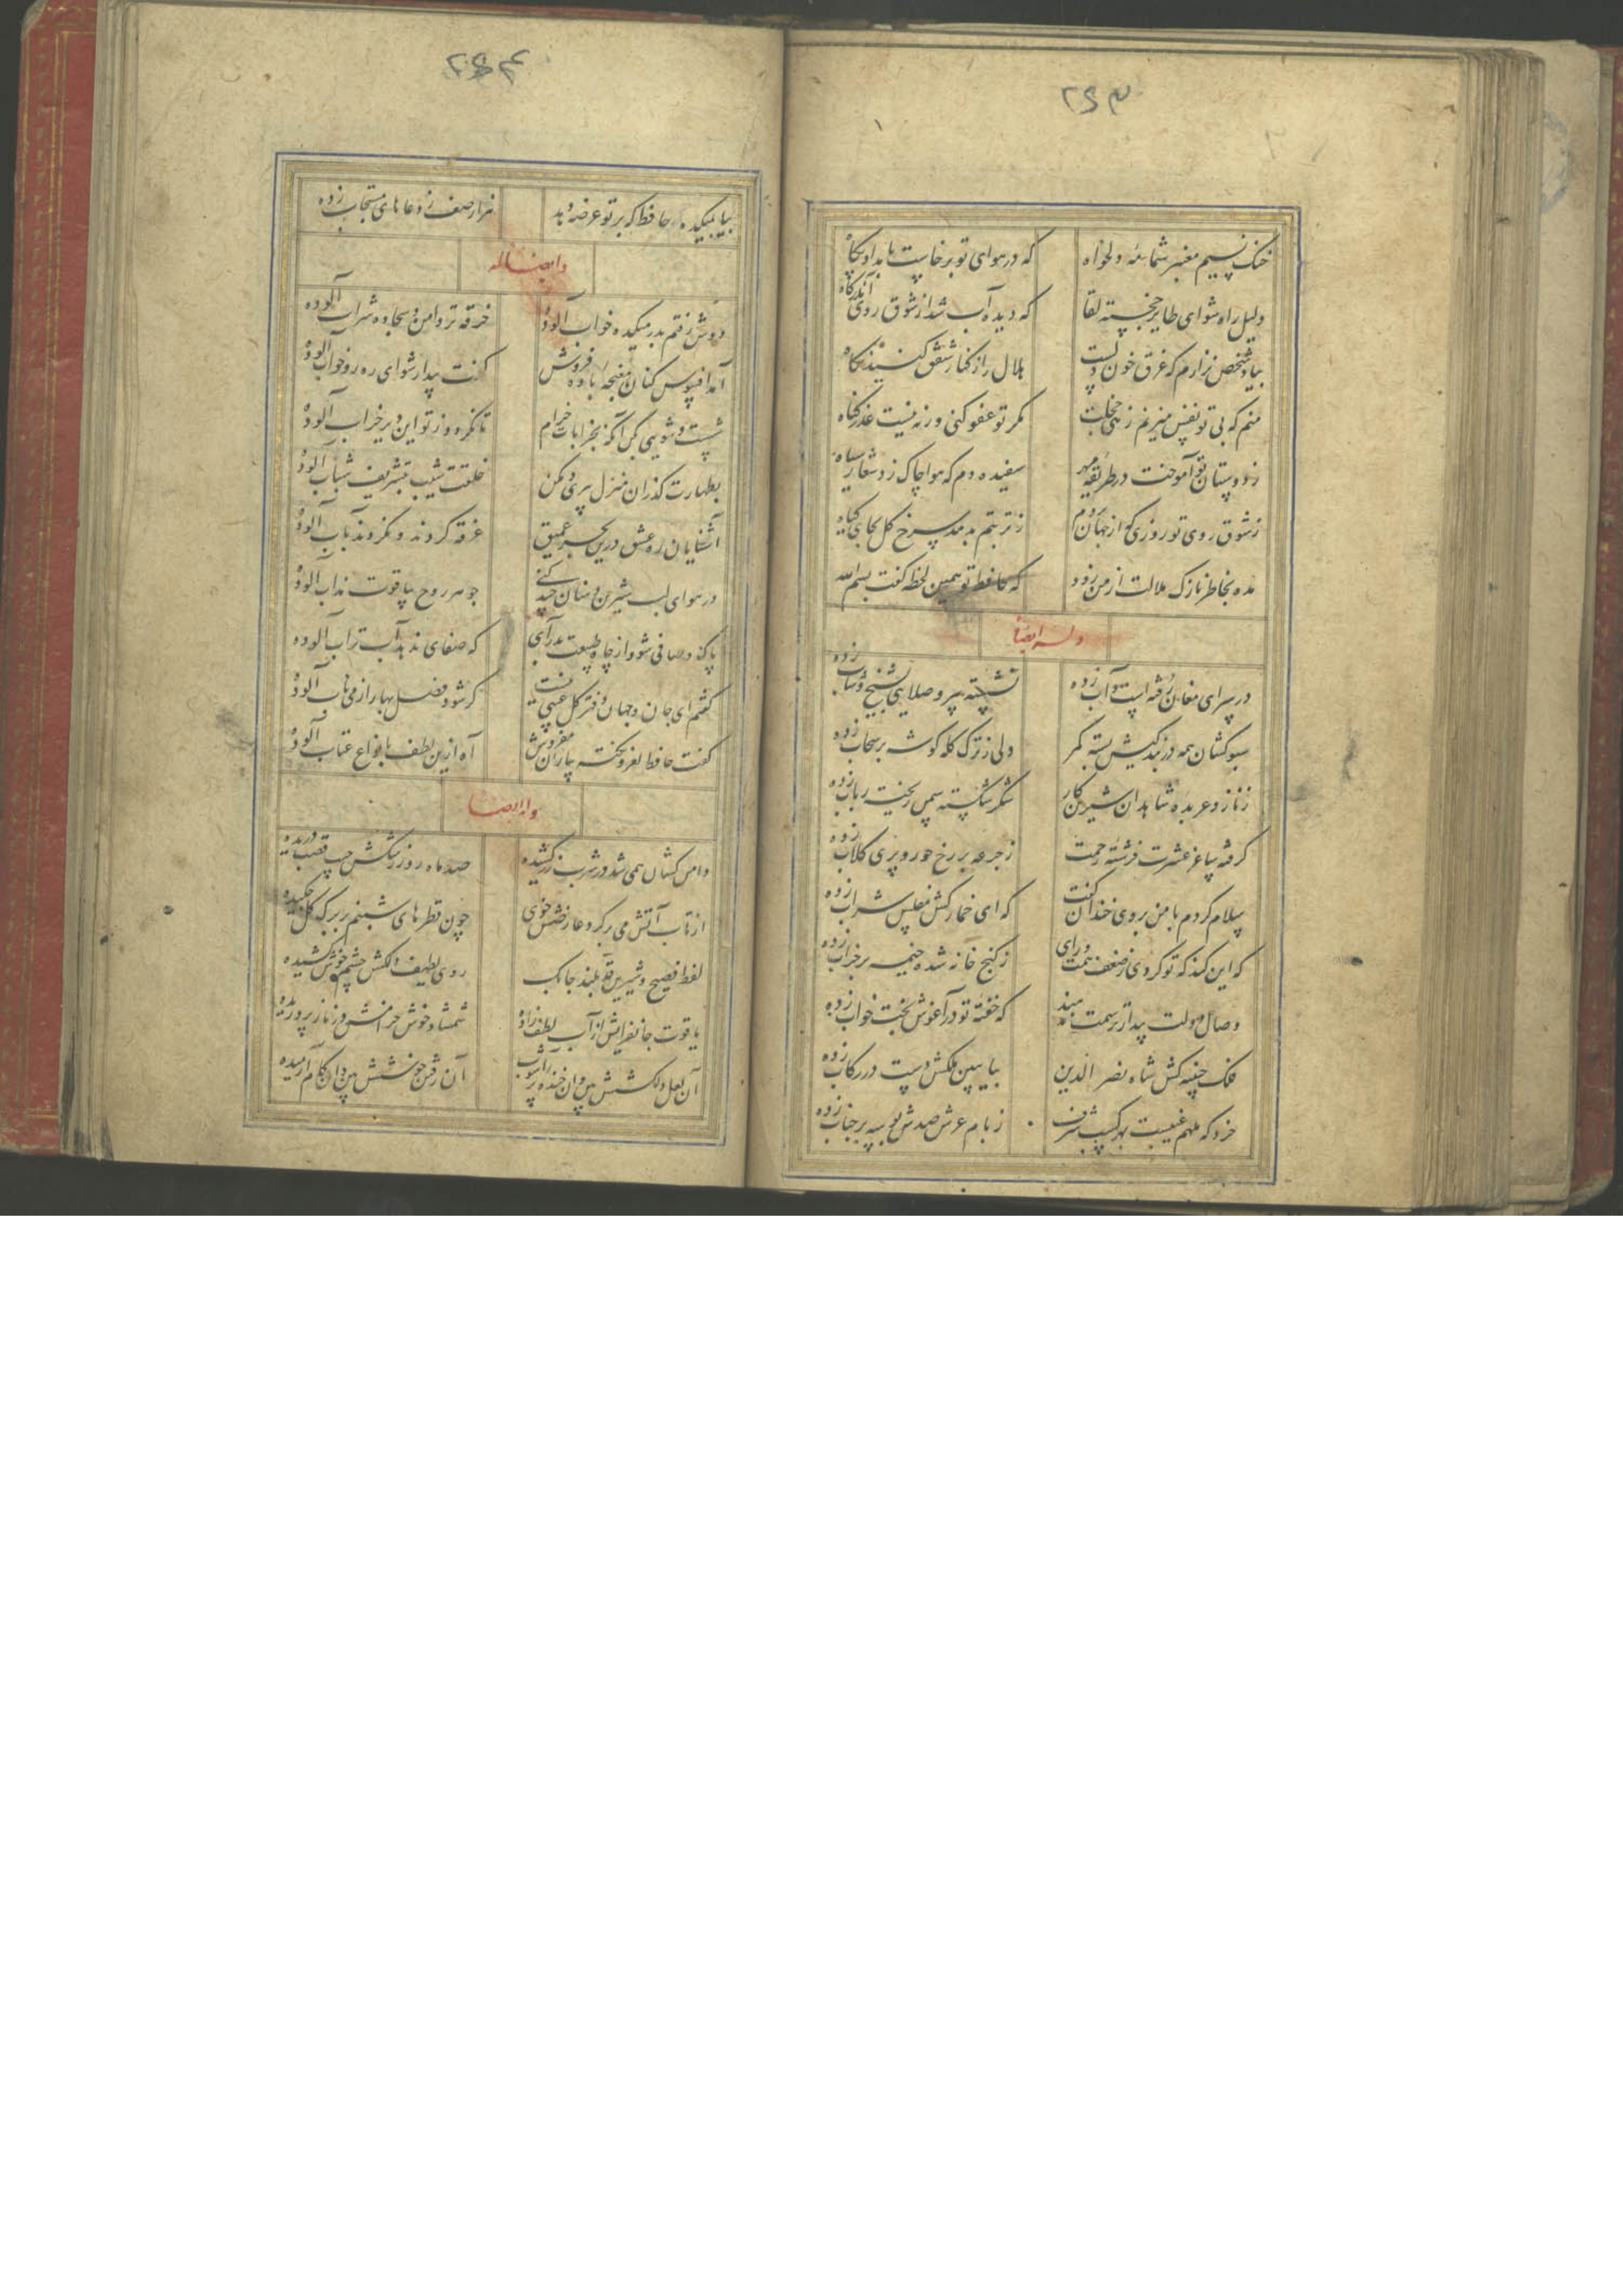 ۲۶۳
خنک نسیم معنبر شمامهٔ دلخواه که در هوای تو برخاست بامداد پگاه
دلیل راه شو ای طایر خجسته لقا که دیده آب شد از شوق روی آن درگاه
بیاد شخص نزارم که غرق خون دلست هلال را ز کنار شفق کنند نگاه
منم که بی تو نفس میزنم زهی خجلت مگر تو عفو کنی ورنه نیست عذر گناه
ز دوستان تو آموخت در طریقه مهر سفیده دم که هوا چاک زد شعار سیاه
ز شوق روی تو روزی که از جهان بروم ز تربتم بدمد سرخ گل بجای گیاه
مده بخاطر نازک ملالت از من زود که حافظ تو همین لحظه گفت بسم الله
وله ایضا
در سرای مغان رفته است و آب زده نشسته پیر و صلایی بشیخ و شاب زده
سبوکشان همه در بندگیش بسته کمر ولی ز ترک کله گوشه بر سحاب زده
ز ناز و عربده شاهدان شیرین کار شکر شکسته سمن ریخته رباب زده
گرفته ساغر عشرت فرشته رحمت ز جرعه بر رخ حور و پری گلاب زده
سلام کردم با من بروی خندان گفت که ای خمارکش مفلس شراب زده
که این کند که تو کردی ز ضعف همت و رای ز کنج خانه شده خیمه بر خراب زده
وصال دولت بیدار ترسمت ندهند که خفتهٔ تو در آغوش بخت خواب زده
فلک جنیبه کش شاه نصر الدین بیا ببین ملکش دست در رکاب زده
خرد که ملهم غیبست بهر کسب شرف ز بام عرش صدش بوسه بر جناب زده
۲۶۴
بیا بمیکده حافظ که بر تو عرضه دهد هزار صف ز دعاهای مستجاب زده
وایضا له
دوش رفتم بدر میکده خواب آلوده خرقه تر دامن و سجاده شراب آلوده
آمد افسوس کنان مغبچهٔ باده فروش گفت بیدار شو ای ره رو خواب آلوده
شست و شویی کن آنگه بخرابات خرام تا نگردد ز تو این دیر خراب آلوده
بطهارت گذران منزل پیری و مکن خلعت شیب بتشریف شباب آلوده
آشنایان ره عشق درین بحر عمیق غرقه گردند و نگردند بآب آلوده
در هوای لب شیرین دهنان چند کنی جوهر روح بیاقوت مذاب آلوده
پاک و صافی شو و از چاه طبیعت بدر آی که صفای ندهد آب تراب آلوده
گفتم ای جان و جهان دفتر گل عیبی نیست گر شود فصل بهار از می ناب آلوده
گفت حافظ لغز و نکته بیاران مفروش آه ازین لطف بانواع عتاب آلوده
وله ایضا
دامن کشان همی شد در شرب زر کشیده صد ماه رو ز رشکش جیب قصب دریده
از تاب آتش می بر گرد عارضش خوی چون قطرهای شبنم بر برگ گل چکیده
لفظ فصیح و شیرین قد بلند چابک روی لطیف دلکش چشم خوش کشیده
یاقوت جانفزایش از آب لطف زاده شمشاد خوش خرامش در ناز پروریده
آن لعل دلکشش بین وان خنده پر آشوب آن رفتن خوشش بین وان گام آرمیده